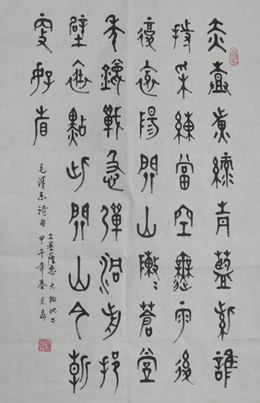 赤橙黃綠青藍紫誰
持采練當空舞雨後
復斜陽關山陣〻蒼當
年鏖戰急彈洞前村
壁裝點此關山今朝
更好看
毛澤東詩句 甲午年春
菩薩蠻 大柏地